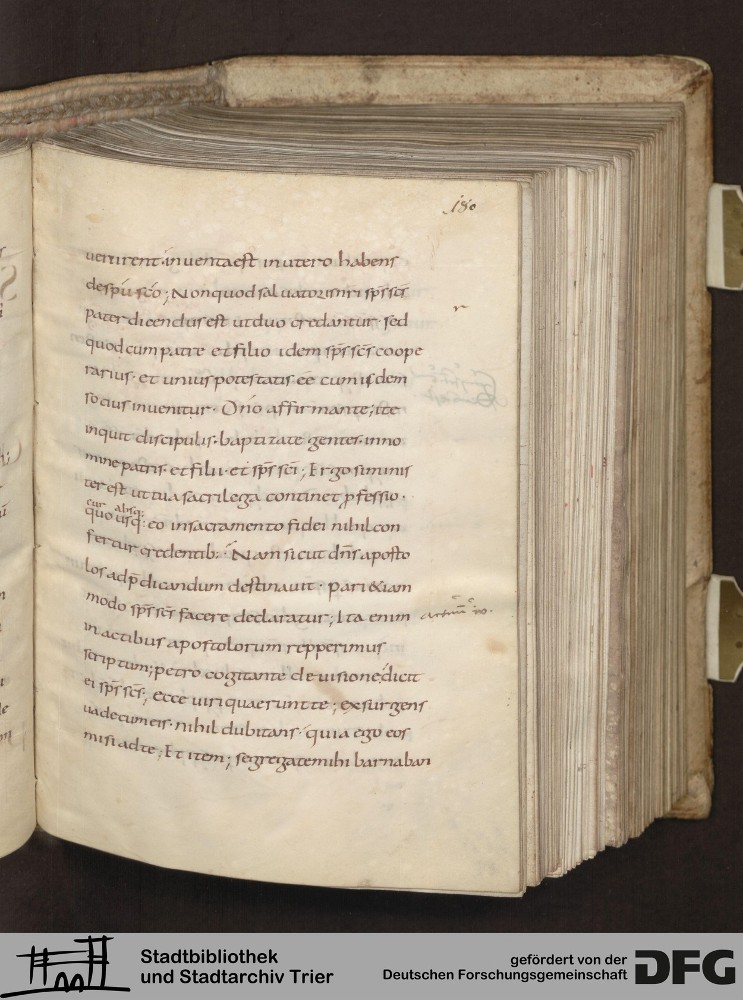 180
uenirent· inuenta est in utero habens
de spū scō; Non quod saluatoris nri sps scs
pater dicendus est ut duo credantur· sed
quod cum patre et filio idem sps scs coope
rarius· et unius potestatis eē cum isdem
socius inuenitur· Dno affirmante; ite
inquit discipulis· baptizate gentes· in no
mine patris· et filii· et sps sci; Ergo si minis
ter est ut tua sacrilega continet ꝓfessio·
cur absq;
quo usq; eo in sacramento fidei nihil con
fertur credentib;· Nam sicut dns aposto
los ad p̄dicandum destinauit· pari &iam
modo sps scs facere declaratur; Ita enim
in actibus apostolorum repperimus
scriptum; petro cogitante de uisione dicit
ei sps scs; ecce uiri quaerunt te; exsurgens
uade cum eis· nihil dubitans· quia ego eos
misi ad te; Et item; segregate mihi barnaban
Stadtbibliothek
und Stadtarchiv Trier
gefördert von der
Deutschen Forschungsgemeinschaft
DFG